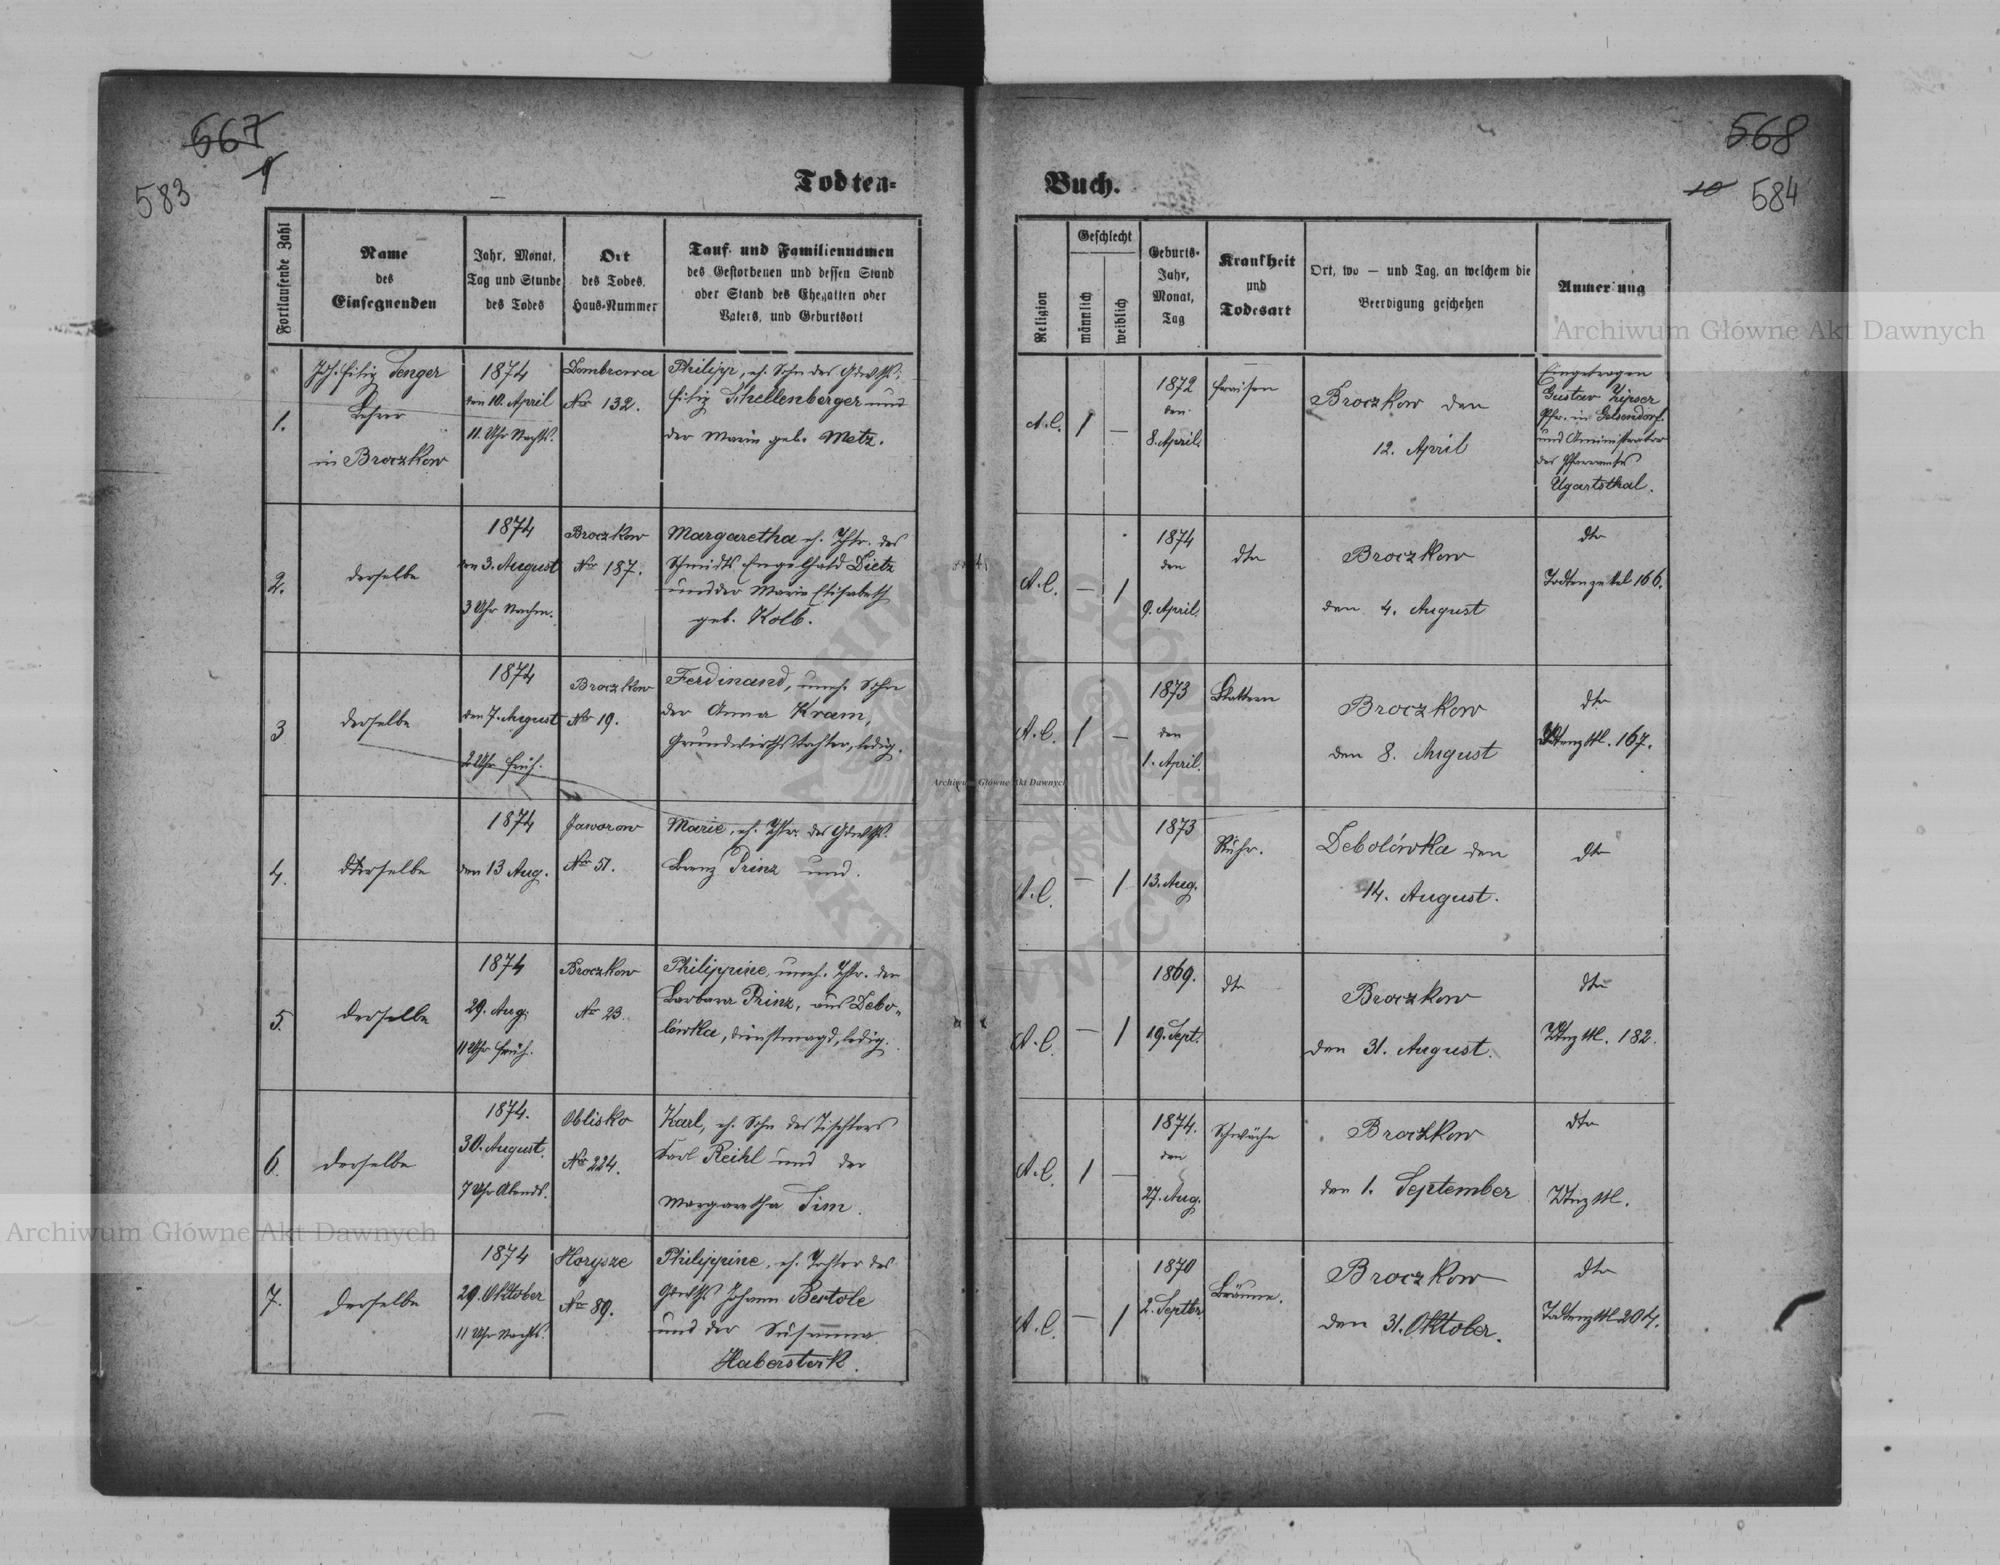 667
9
583
Todten-
Fortlaufende Zahl
Name
des
Einsegnenden
Jahr, Monat,
Tag und Stunde
des Todes
Ort
des Todes,
Haus-Nummer
Tauf- und Familiennamen
des Gestorbenen und dessen Stand
oder Stand des Ehegatten oder
Vaters, und Geburtsort
1.
Tenger
Lehrer
in Broczkow
1874
den 10. April
11. Uhr Nachts.
Dombrowa
Nro 132.
Philipp, eh. Sohn des Gdwths.
Schellenberger und
der Marie geb. Metz.
2.
derselbe
1874
den 3. August
3 Uhr Nachm.
Broczkow
Nro 187.
Margaretha eh. Thtr. des
Schmidts Engelhard Dietz
und der Marie Elisabeth
geb. Kolb.
3
derselbe
1874
den 7. August
2 Uhr früh.
Broczkow
Nro 19.
Ferdinand, uneh. Sohn
der Anna Kram,
Grundwirthstochter, ledig.
4.
derselbe
1874
den 13 Aug.
Jaworow
Nro 51.
Marie, eh. Thtr. des Gdwths.
Lorenz Prinz und.
5.
derselbe
1874
29. Aug.
11 Uhr früh.
Broczkow
Nro 23.
Philippine, uneh. Thtr. der
Barbara Prinz, aus Debo-
lówka, Dienstmagd, ledig.
6.
derselbe
1874.
30. August.
7 Uhr Abends.
Oblisko
Nro 224.
Karl, eh. Sohn des Tischlers
Karl Reihl und der
Margaretha Tim.
7.
derselbe
1874
29. Oktober
11 Uhr Nachts.
Horysze
Nro 89.
Philippine, eh. Tochter des
Gdwths. Johann Bertole
und der Susanna
Habersterk.
568
10 584
Buch.
Religion
Geschlecht
männlich
weiblich
Geburts-
Jahr,
Monat,
Tag
Krankheit
und
Todesart
Ort, wo — und Tag, an welchem die
Beerdigung geschehen
Anmerkung
A.C.
1
—
1872
den
8. April.
Fraisen
Broczkow den
12. April
Eingetragen
Gustav Zipser
Pfr. in Gelsendorf.
und Administrator
des Pfarramtes
Ugartsthal.
A.C.
—
1
1874
den
9. April.
dto
Broczkow
den 4. August
dto
Todtenzettel 166.
A.C.
1
—
1873
den
1. April.
Blattern
Broczkow
den 8. August
dto
167.
A.C.
—
1
1873
13. Aug.
Ruhr.
Debolówka den
14. August.
dto
A.C.
—
1
1869.
19. Sept.
dto
Broczkow
den 31. August.
dto
182.
A.C.
1
—
1874.
den
27. Aug.
Schwäche
Broczkow
den 1. September
dto
A.C.
—
1
1870
2. Septbr.
Bräune.
Broczkow
den 31. Oktober.
dto
Todtenzttl. 204.
Archiwum Główne Akt Dawnych
Archiwum Główne Akt Dawnych
Archiwum Główne Akt Dawnych
ARCHIWUM GŁÓWNE
AKT DAWNYCH